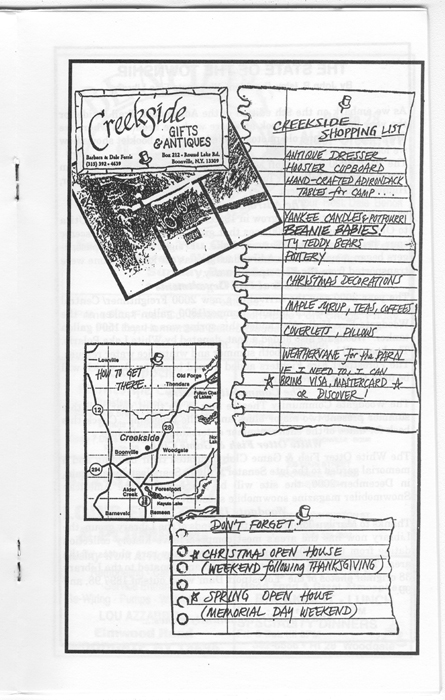 Creekside
GIFTS
&ANTIQUES
Barbara & Dale Farris
(315) 392 - 4639
Box 212 - Round Lake Rd.
Boonville, N.Y. 13309
CREEKSIDE
SHOPPING LIST
ANTIQUE DRESSER
HOOSIER CUPBOARD
HAND-CRAFTED ADIRONDACK
TABLES for CAMP...
YANKEE CANDLES & POTPOURRI
BEANIE BABIES!
TY TEDDY BEARS
POTTERY
CHRISTMAS DECORATIONS
MAPLE SYRUP, TEAS, COFFEES
COVERLETS, PILLOWS
WEATHERVANE for the BARN.
IF I NEED TO, I CAN
BRING VISA, MASTERCARD
OR DISCOVER!
HOW TO GET
THERE...
Lowville
Old Forge
Thendara
Fulton Chain
of Lakes
12
28
Creekside
Boonville
Woodgate
294
Alder
Creek
Forestport
Kayuta Lake
Barneveld
Remsen
DON'T FORGET:
CHRISTMAS OPEN HOUSE
(WEEKEND following THANKSGIVING)
SPRING OPEN HOUSE
(MEMORIAL DAY WEEKEND)